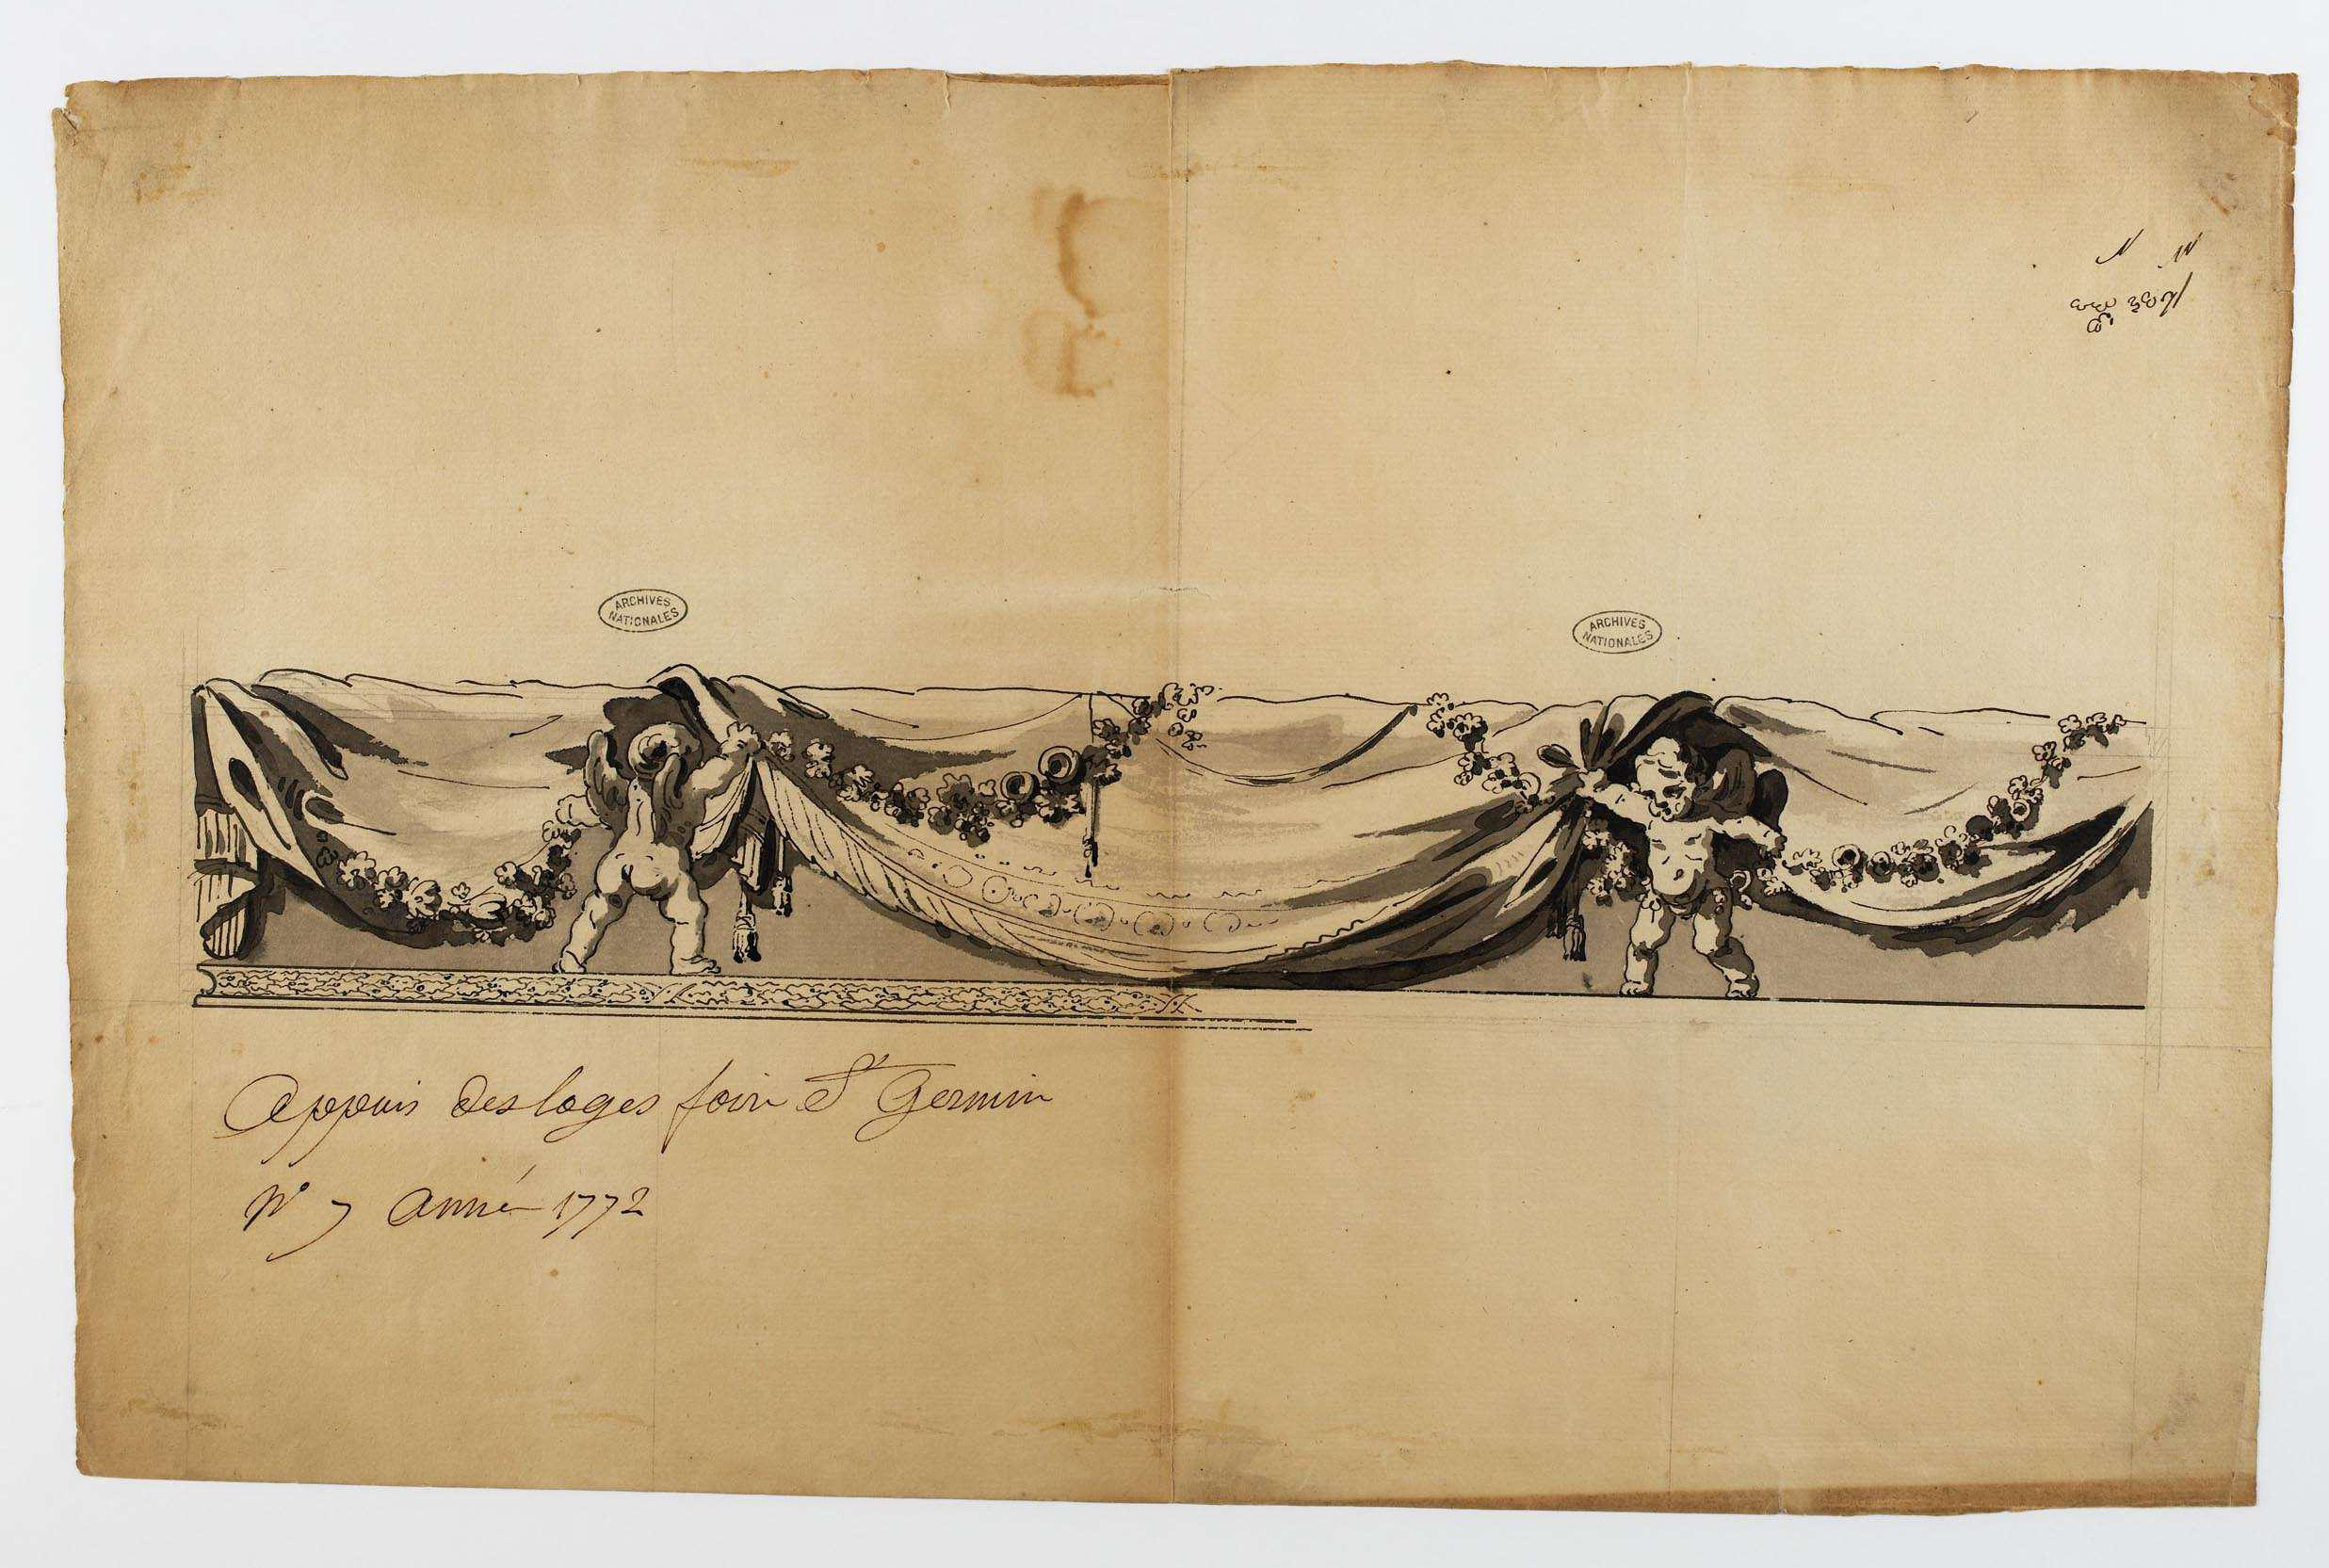 ARCHIVES
NATIONALES
ARCHIVES
NATIONALES
Appuis des loges foire St Germin
No 7 année 1772